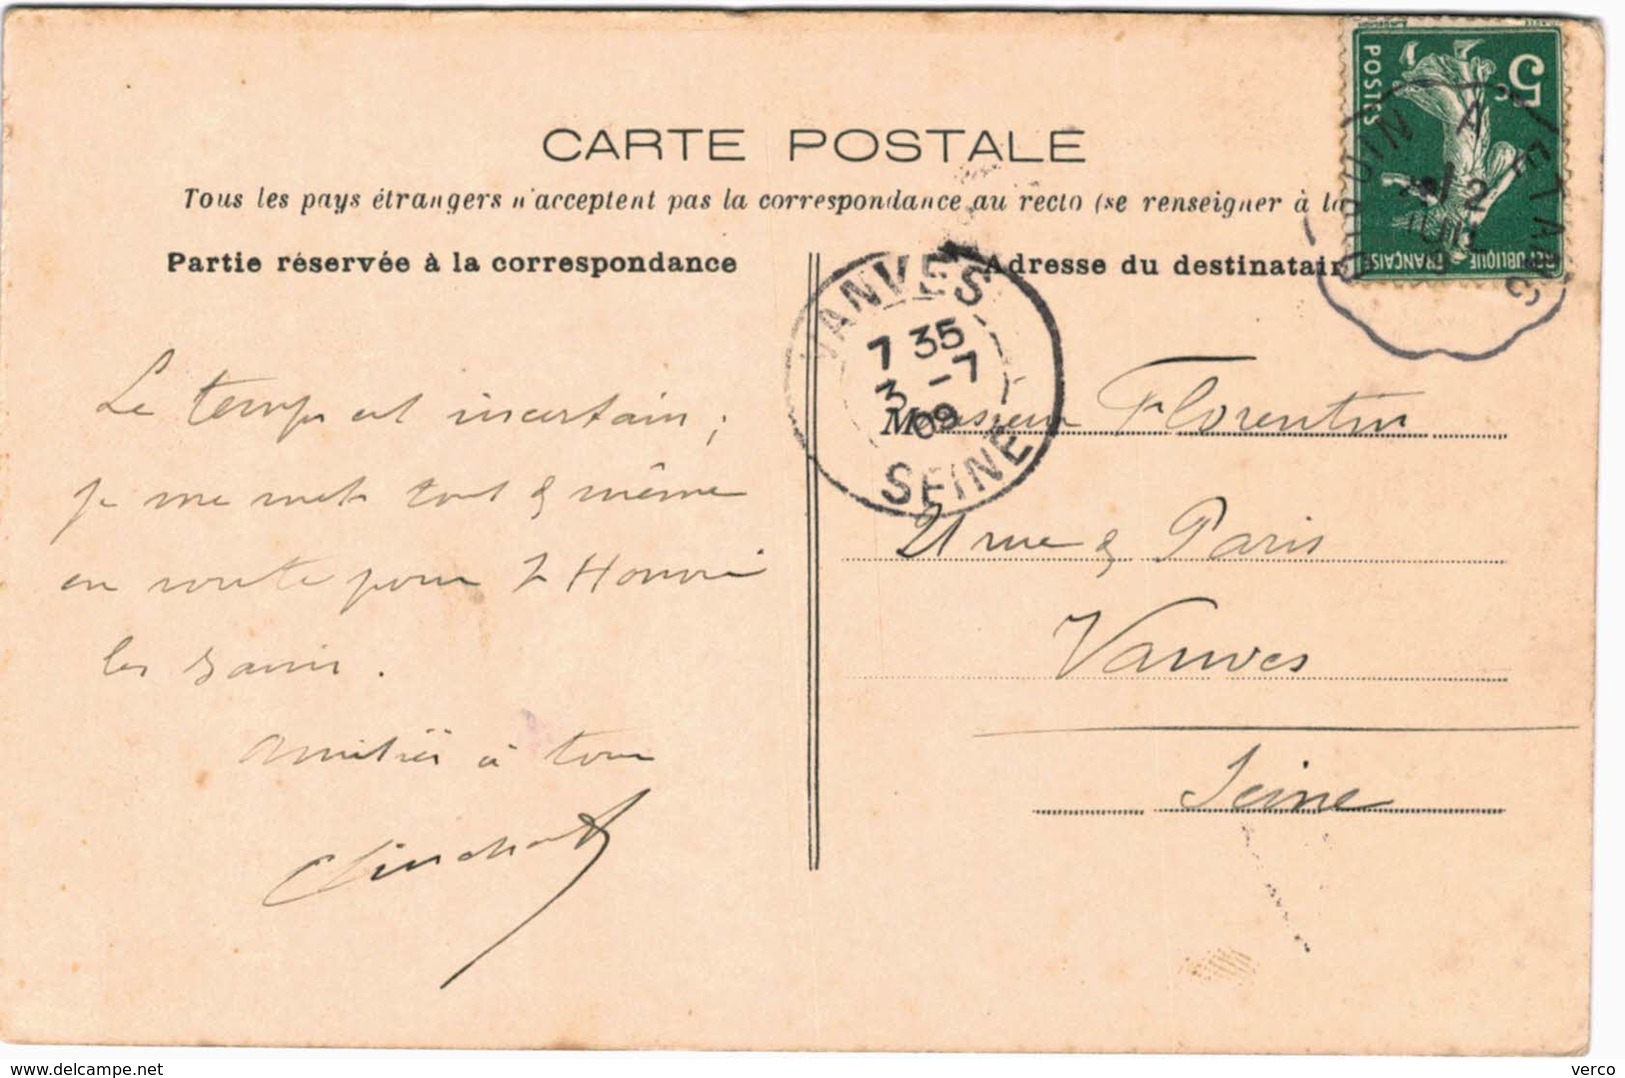 CARTE POSTALE
Tous les pays étrangers n'acceptent pas la correspondance au recto (se renseigner à la
Partie réservée à la correspondance
Adresse du destinatair
5c
POSTES
REPUBLIQUE FRANÇAISE
VANVES
7 35
3 -7
09
SEINE
Le temps est incertain ;
je me mets tout de même
en route pour St Honoré
les bains.
Amitiés à tous
Monsieur Florentin
21 rue de Paris
Vanves
Seine
delcampe.net
verco